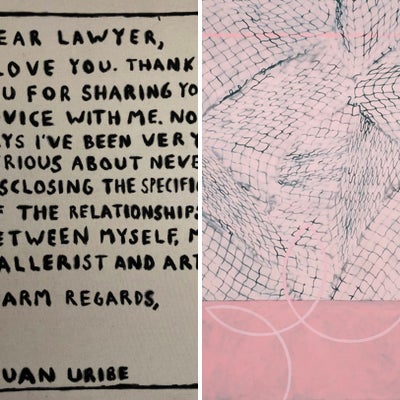 EAR LAWYER,
LOVE YOU. THANK
U FOR SHARING YO
VICE WITH ME. NO
YS I'VE BEEN VERY
RIOUS ABOUT NEVE
SCLOSING THE SPECIFI
F THE RELATIONSHIPS
ETWEEN MYSELF, M
ALLERIST AND ART
ARM REGARDS,
UAN URIBE